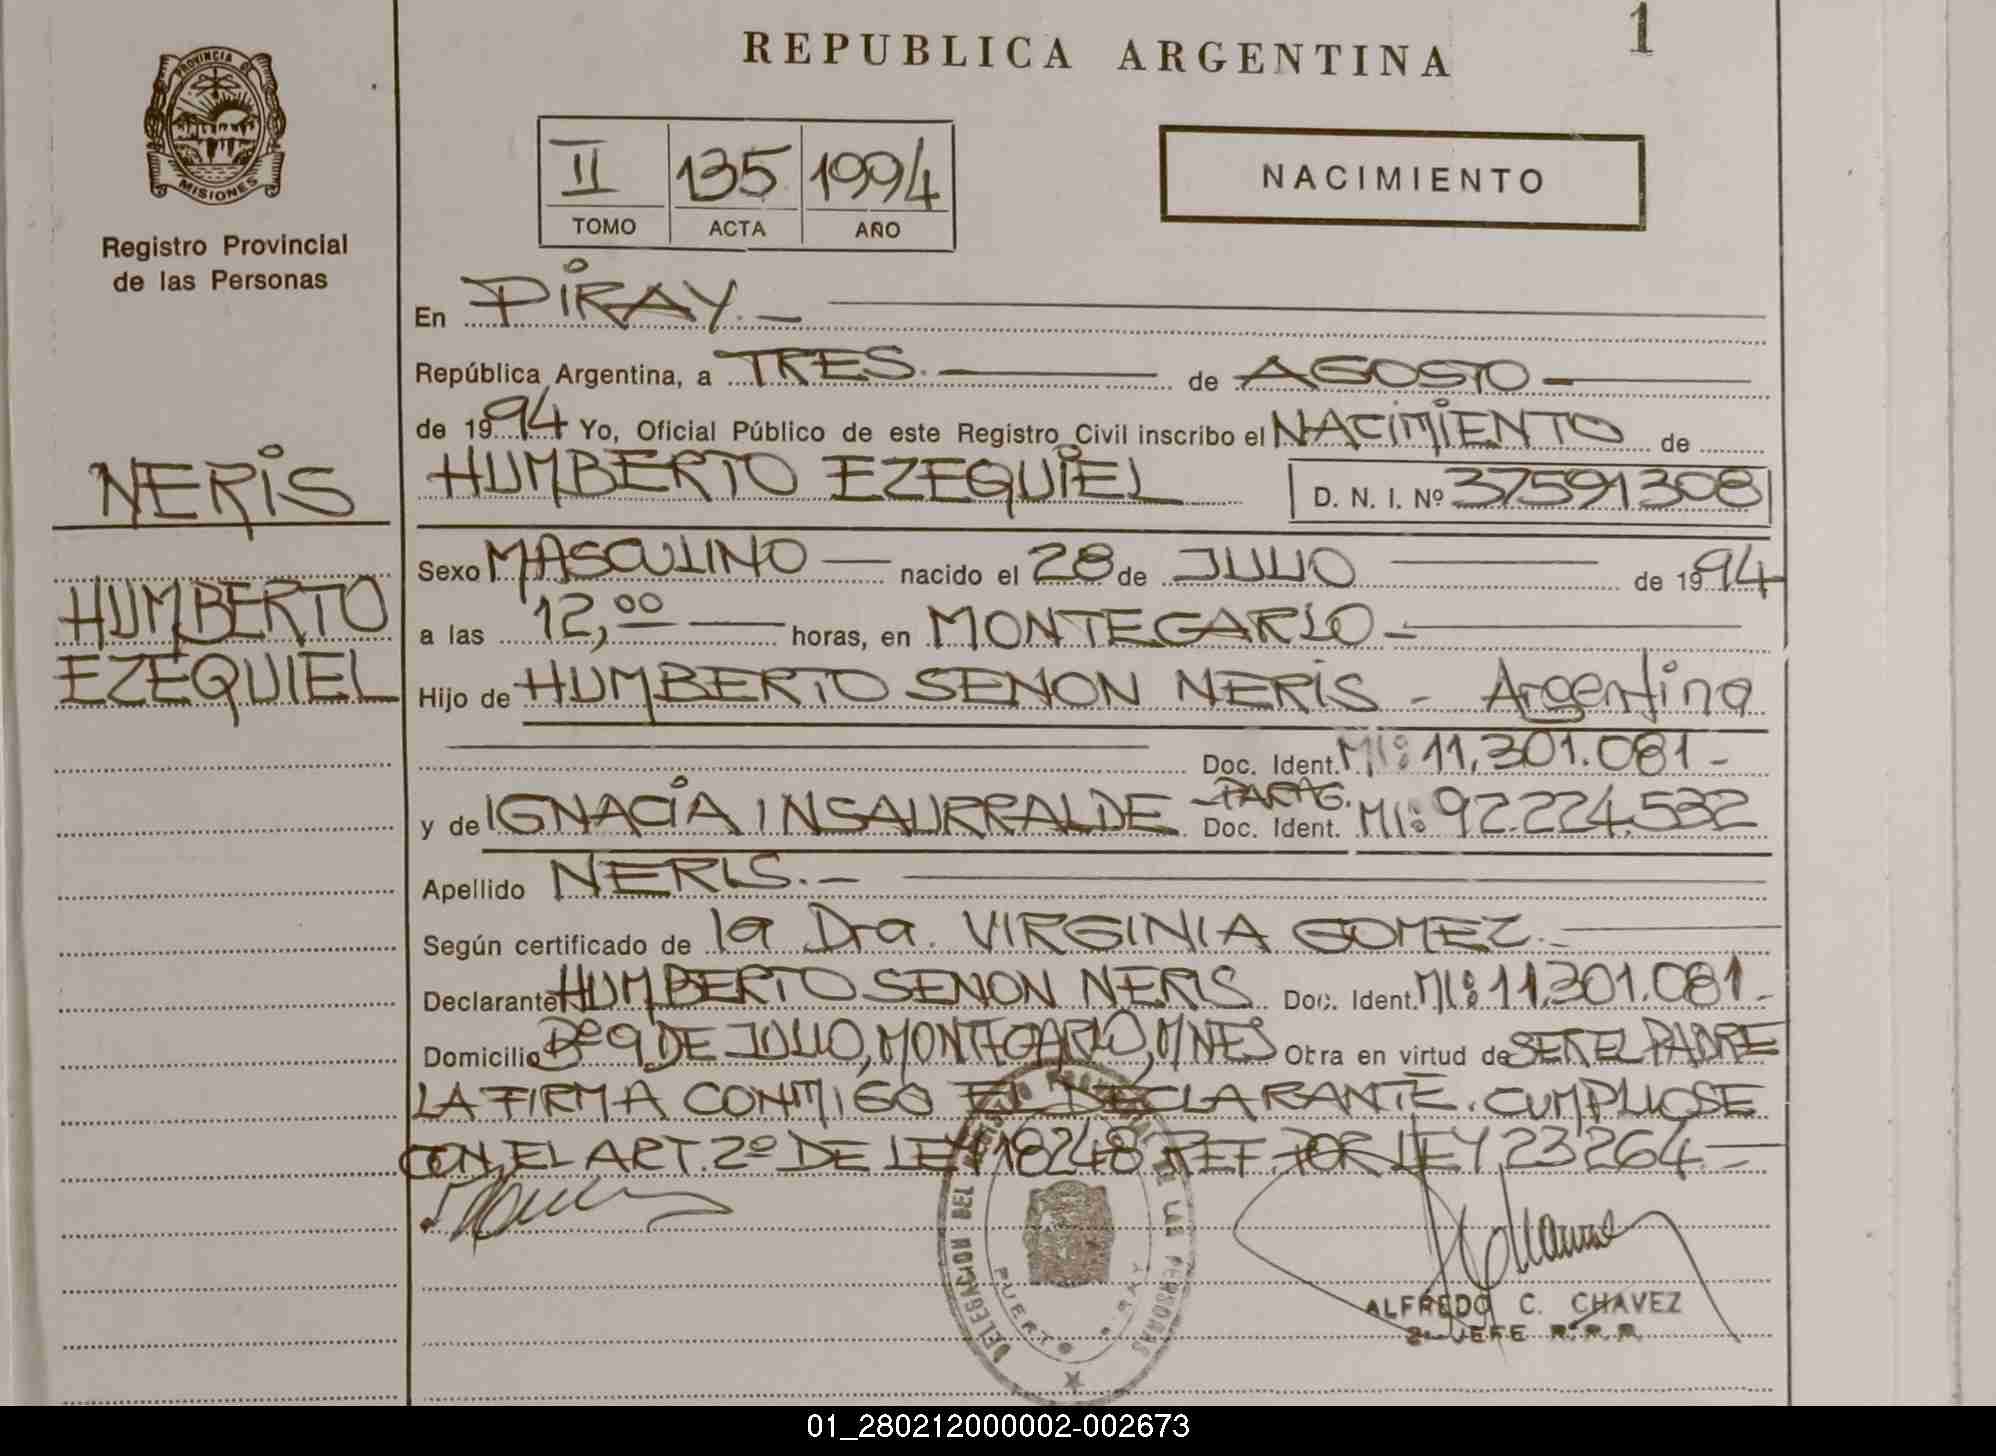 REPUBLICA ARGENTINA
1
PROVINCIA DE
MISIONES
Registro Provincial
de las Personas
II 135 1994
TOMO ACTA AÑO
NACIMIENTO
En PIRAY.—
República Argentina, a TRES. de AGOSTO
de 1994 Yo, Oficial Público de este Registro Civil inscribo el NACIMIENTO de
HUMBERTO EZEQUIEL D. N. I. Nº 37591308
NERIS
HUMBERTO
EZEQUIEL
Sexo MASCULINO nacido el 28 de JULIO de 1994
a las 12,00 horas, en MONTECARLO
Hijo de HUMBERTO SENON NERIS - Argentino
Doc. Ident. MI: 11.301.081-
y de IGNACIA INSAURRALDE -PARAG. Doc. Ident. MI: 92.224.532
Apellido NERIS.-
Según certificado de la Dra. VIRGINIA GOMEZ.
Declarante HUMBERTO SENON NERIS Doc. Ident. MI: 11.301.081-
Domicilio Bº 9 DE JULIO, MONTECARLO, MNES Obra en virtud de SER EL PADRE
LA FIRMA CONMIGO EL DECLARANTE. CUMPLIOSE
CON EL ART. 2º DE LEY 18248 REF. POR LEY 23264.-
DELEGACION DEL REGISTRO PROVINCIAL DE LAS PERSONAS
PUERTO PIRAY
ALFREDO C. CHAVEZ
JEFE R.P.P.
01_280212000002-002673